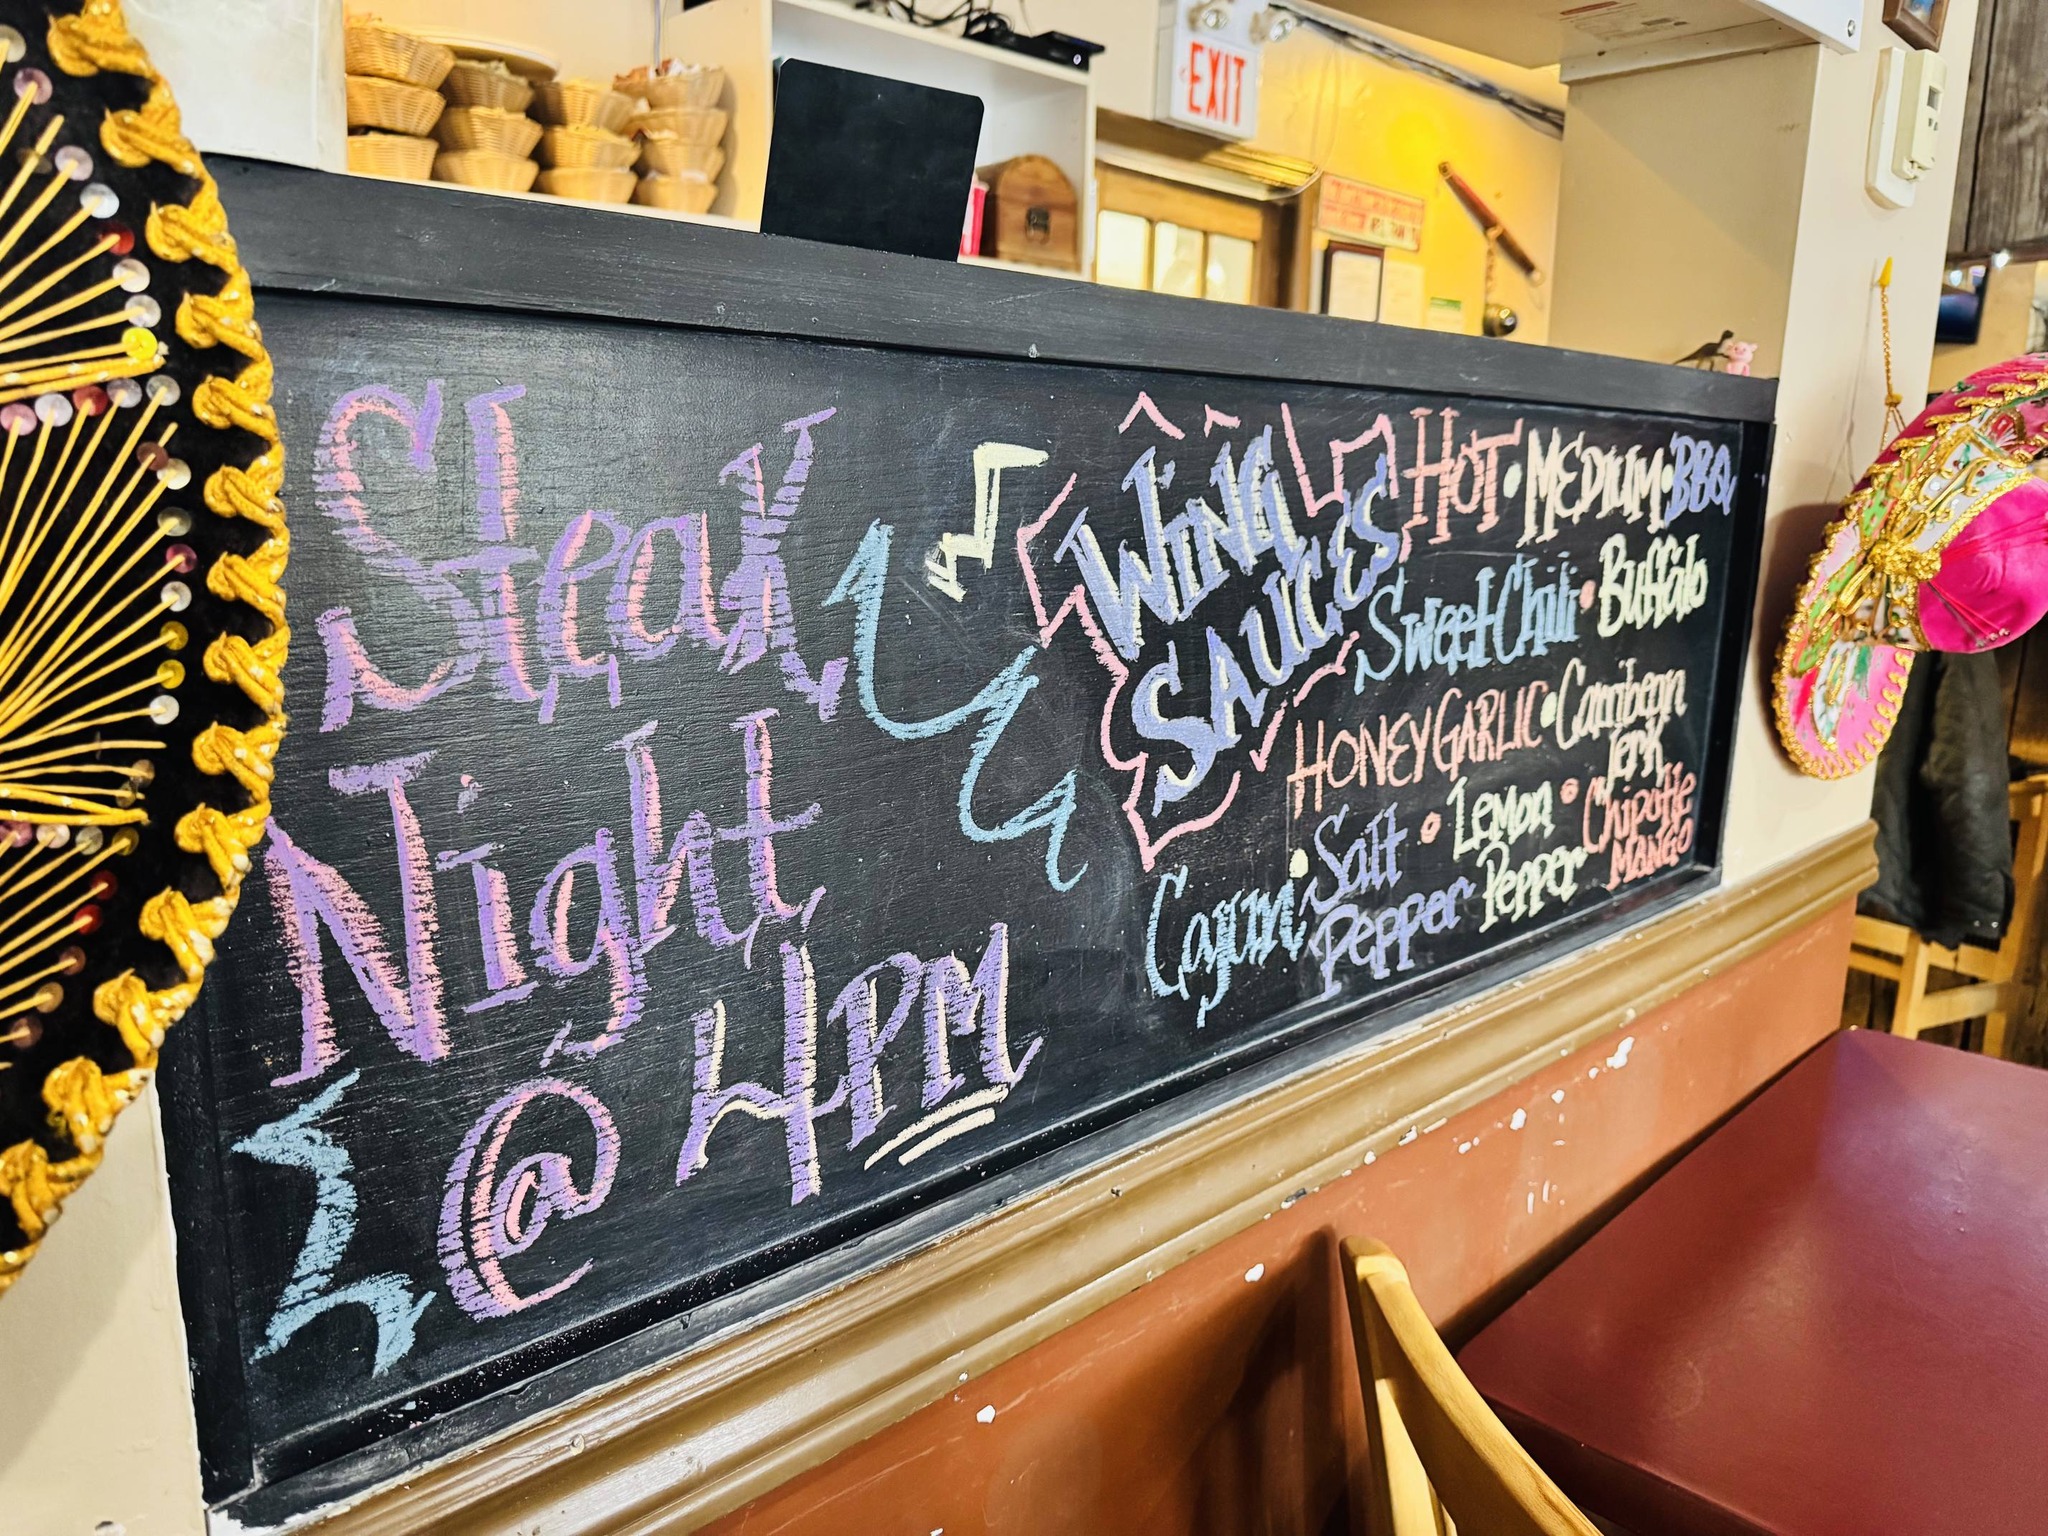 EXIT
Steak
Night
@ 4PM
WING
SAUCES
HOT • MEDIUM • BBQ
SWEET Chili • Buffalo
HONEY GARLIC • Carribean
Jerk
Cajun • Salt
Pepper • Lemon
Pepper • Chipotle
MANGO